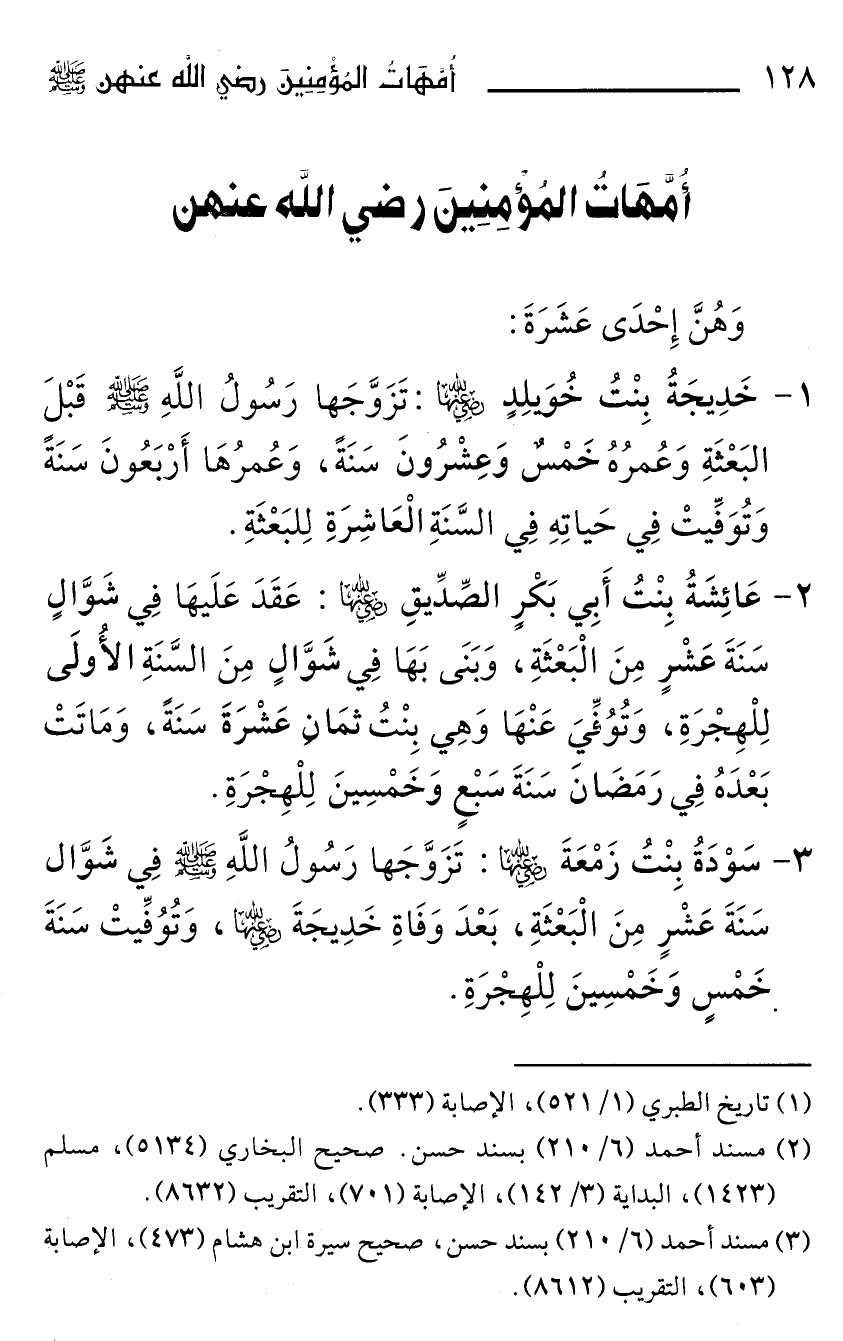 ١٢٨ أُمَّهَاتُ المُؤْمِنِينَ رضي الله عنهن ﷺ
أُمَّهَاتُ المُؤْمِنِينَ رضي اللَّه عنهن
وَهُنَّ إِحْدَى عَشَرَةَ:
١- خَدِيجَةُ بِنْتُ خُوَيلِدٍ رضي الله عنها : تَزَوَّجَها رَسُولُ اللَّهِ ﷺ قَبْلَ
البَعْثَةِ وَعُمرُهُ خَمْسٌ وَعِشْرُونَ سَنَةً، وَعُمرُهَا أَرْبَعُونَ سَنَةً
وَتُوَفِّيتْ فِي حَياتِهِ فِي السَّنَةِ الْعَاشِرَةِ لِلبَعْثَةِ.
٢- عَائِشَةُ بِنْتُ أَبِي بَكْرٍ الصِّدِّيقِ رضي الله عنها : عَقَدَ عَلَيهَا فِي شَوَّالٍ
سَنَةَ عَشْرٍ مِنَ الْبَعْثَةِ، وَبَنَى بَهَا فِي شَوَّالٍ مِنَ السَّنَةِ الأُولَى
لِلْهِجْرَةِ، وَتُوُفِّيَ عَنْهَا وَهِي بِنْتُ ثمَانِ عَشْرَةَ سَنَةً، وَمَاتَتْ
بَعْدَهُ فِي رَمَضَانَ سَنَةَ سَبْعٍ وَخَمْسِينَ لِلْهِجْرَةِ.
٣- سَوْدَةُ بِنْتُ زَمْعَةَ رضي الله عنها : تَزَوَّجَها رَسُولُ اللَّهِ ﷺ فِي شَوَّال
سَنَةَ عَشْرٍ مِنَ الْبَعْثَةِ، بَعْدَ وَفَاةِ خَدِيجَةَ رضي الله عنها ، وَتُوُفِّيتْ سَنَةَ
خَمْسٍ وَخَمْسِينَ لِلْهِجْرَةِ.
(١) تاريخ الطبري (١/ ٥٢١)، الإصابة (٣٣٣).
(٢) مسند أحمد (٦/ ٢١٠) بسند حسن. صحيح البخاري (٥١٣٤)، مسلم
(١٤٢٣)، البداية (٣/ ١٤٢)، الإصابة (٧٠١)، التقريب (٨٦٣٢).
(٣) مسند أحمد (٦/ ٢١٠) بسند حسن، صحيح سيرة ابن هشام (٤٧٣)، الإصابة
(٦٠٣)، التقريب (٨٦١٢).